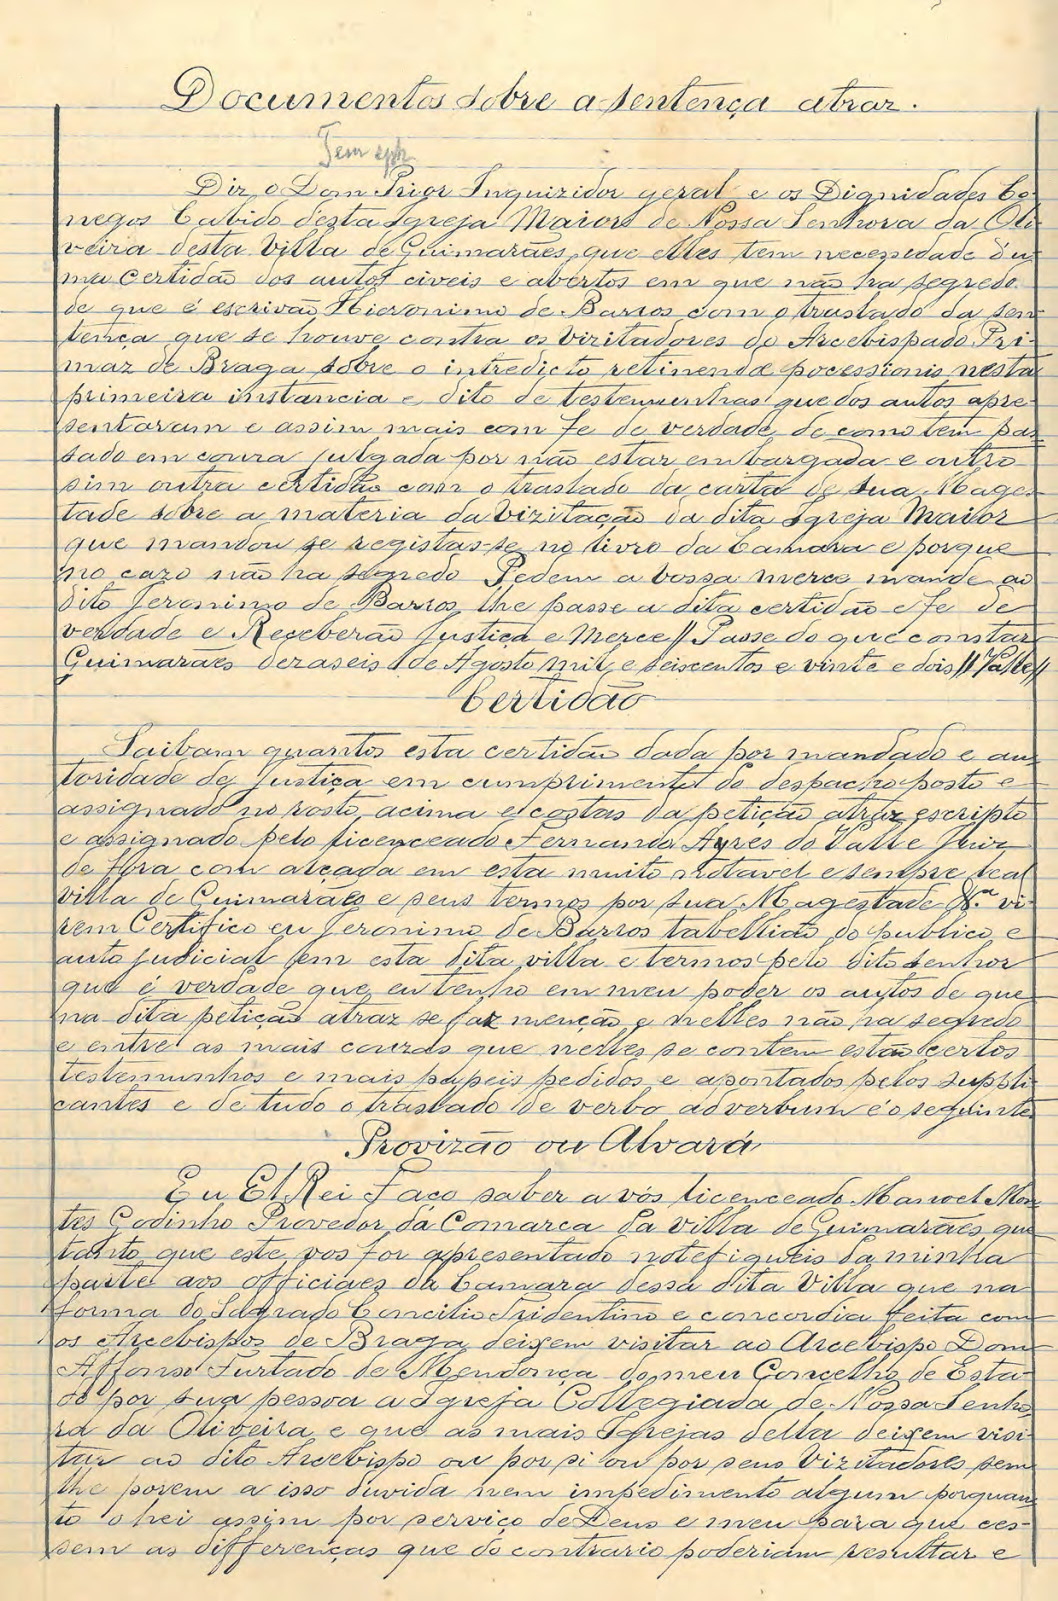 Documentos sobre a sentença atraz.
Tem
Diz o Dom Prior Inquizidor geral e os Dignidades Co-
negos Cabido desta Igreja Maior de Nossa Senhora da Oli
veira desta Villa de Guimarães, que elles tem necessidade d'u
ma certidão dos autos civeis e abertos em que não ha segredo
de que é escrivão Hieronimo de Barros com o traslado da sen
tença que se houve contra os vizitadores do Arcebispado Pri-
maz de Braga sobre o intredicto retinendæ pocessionis nesta
primeira instancia e dito de testemunhas que dos autos apre-
sentaram e assim mais com fe de verdade de como tem pas
sado em couza julgada por não estar embargada e outro
sim outra certidão com o traslado da carta de Sua Mages
tade sobre a materia da Vizitação da dita Igreja Maior
que mandou se registasse no livro da Camara e porque
no cazo não ha segredo Pedem a vossa merce mande ao
dito Jeronimo de Barros lhe passe a dita certidão e fe de
verdade e Receberão Justiça e Merce // Passe do que constar
Guimarães dezaseis de Agosto mil e seiscentos e vinte e dois // Valle //
Certidão
Saibam quantos esta certidão dada por mandado e au
toridade de Justiça em cumprimento do despacho posto e
assignado no rosto acima e costas da petição atraz escripto
e assignado pelo licenceado Fernando Ayres do Valle Juiz
de fóra com alçada em esta muito notavel e sempre leal
villa de Guimarães e seus termos por sua Magestade &.ª vi-
rem Certifico eu Jeronimo de Barros tabellião do publico e
auto judicial em esta dita villa e termos pelo dito senhor
que é verdade que eu tenho em meu poder os autos de que
na dita petição atraz se faz menção e nelles não ha segredo
e entre as mais couzas que nelles se contem estão certos
testemunhos e mais papeis pedidos e apontados pelos suppli
cantes e de tudo o traslado de verbo adverbum é o seguinte
Provizão ou Alvará
Eu El Rei Faço saber a vós licenceado Manoel Mon
tes Godinho Provedor da Comarca da villa de Guimarães que
tanto que este vos for apresentado notefiqueis da minha
parte aos officiaes da Camara dessa dita Villa que na
forma do Sagrado Concilio Tridentino e concordia feita com
os Arcebispos de Braga deixem visitar ao Arcebispo Dom
Affonso Furtado de Mendonça do meu Concelho de Esta
do por sua pessoa a Igreja Collegiada de Nossa Senho
ra da Oliveira e que as mais Igrejas della deixem visi-
tar ao dito Arcebispo ou por si ou por seus Vizitadores sem
lhe porem a isso duvida nem impedimento algum porquan
to o hei assim por serviço de Deus e meu para que ces-
sem as differenças que do contrario poderiam resultar e